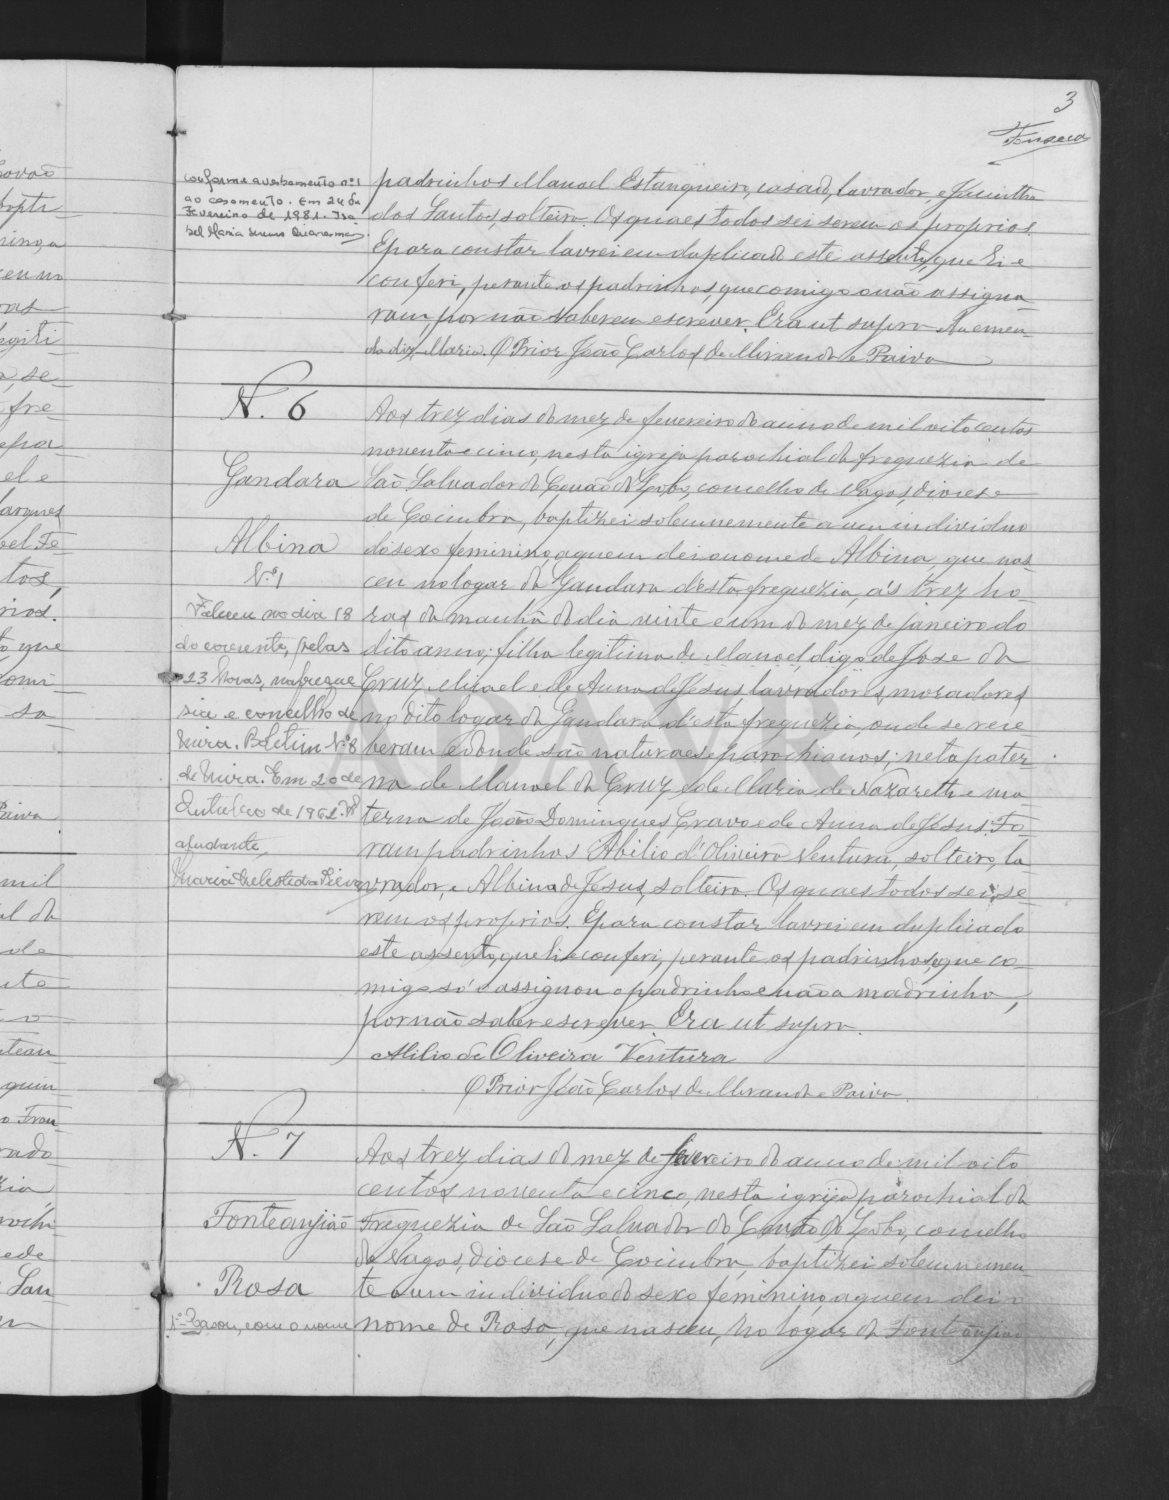 3
Fonseca
conforme averbamento nº 1
ao casamento. Em 24 de
Fevereiro de 1981. Isa
bel Maria
padrinhos Manoel Estanqueiro, casado, lavrador, e Jacintha
dos Santos, solteira. Os quaes todos sei serem os proprios.
E para constar lavrei em duplicado este assento, que li e
conferi, perante os padrinhos, que comigo o não assigna
ram, por não saberem escrever. Era ut supra. A emen
da diz Maria. O Prior João Carlos de Miranda e Paiva
N. 6
Gandara
Albina
Nº 1
Faleceu no dia 18
do corrente, pelas
23 horas, na fregue
sia e concelho de
Mira. Boletim Nº 8
de Mira. Em 20 de
Outubro de 1962. A
ajudante,
Maria Celeste da
Aos trez dias do mez de fevereiro do anno de mil oito centos
noventa e cinco, nesta igreja parochial da freguezia de
São Salvador do Covão do Lobo, concelho de Vagos, diocese
de Coimbra, baptizei solemnemente a um individuo
do sexo feminino a quem dei o nome de Albina, que nas
ceu no logar da Gandara d'esta freguezia, ás trez ho-
ras da manhã do dia vinte e um do mez de janeiro do
dito anno; filha legitima de Manoel, digo de Jose da
Cruz Micael e de Anna de Jesus, lavradores, moradores
no dito logar da Gandara d'esta freguezia, onde se rece
beram e d'onde são naturaes e parochianos; neta pater
na de Manoel da Cruz, e de Maria de Nazareth e ma
terna de João Domingues Cravo e de Anna de Jesus. Fo-
ram padrinhos Abilio d'Oliveira Ventura, solteiro, la
vrador, e Albina de Jesus, solteira. Os quaes todos sei se-
rem os proprios. E para constar lavrei em duplicado
este assento, que li e conferi, perante os padrinhos, que co-
migo só o assignou o padrinho e não a madrinha,
por não saber escrever. Era ut supra.
Abilio de Oliveira Ventura
O Prior João Carlos de Miranda e Paiva.
N. 7
Fonteanjião
Rosa
1º - Casou, com o nome
Aos trez dias do mez de fevereiro do anno de mil oito
centos noventa e cinco, nesta igreja parochial da
Freguezia de São Salvador do Covão do Lobo, concelho
de Vagos, diocese de Coimbra, baptizei solemnemen-
te a um individuo do sexo feminino, a quem dei o
nome de Rosa, que nasceu, no logar da Fonteanjião
ADAVR